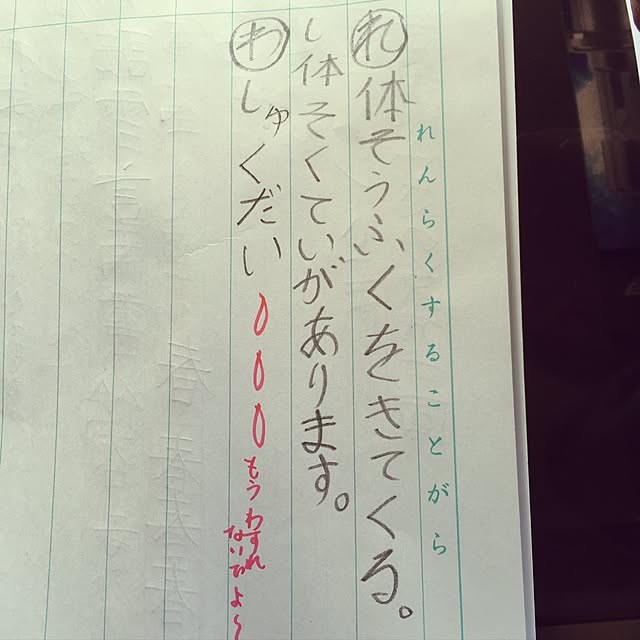 れんらくすることがら
れ 体そうふくをきてくる。
し体そくていがあります。
わ しゅくだい
もうわすれ
ないでよ〜